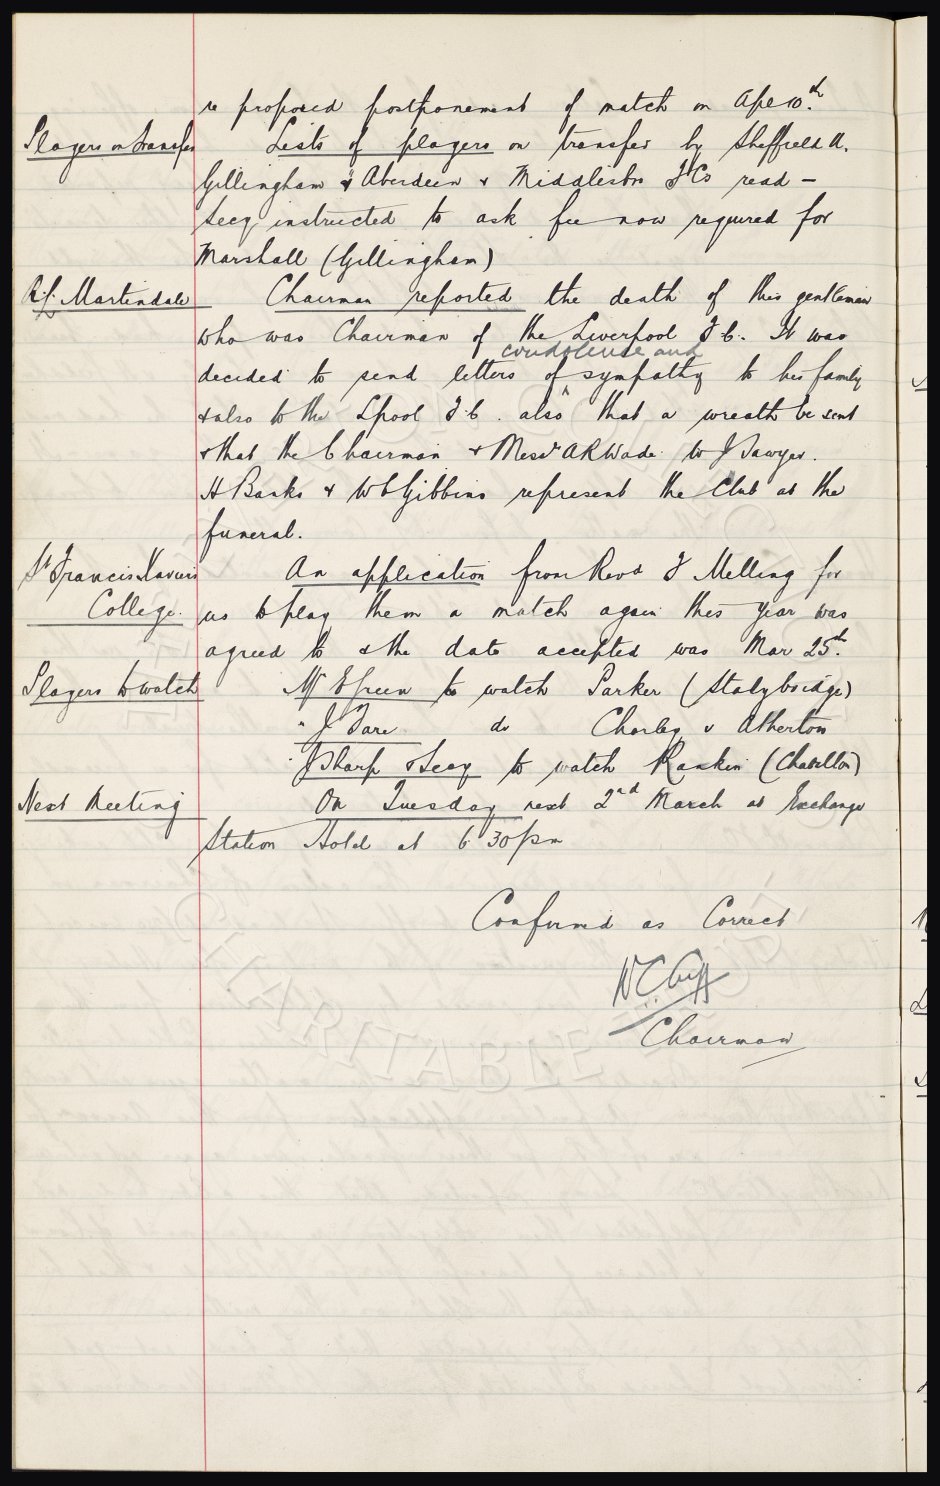 re proposed postponement of match on Apl 10th.
Players on Transfer Lists of players on transfer by Sheffield U.
Gillingham & Aberdeen & Middlesbro F Cs read —
Secy instructed to ask fee now required for
Marshall (Gillingham)
Martindale Chairman reported the death of this gentleman
who was Chairman of the Liverpool F.C. It was
condolence and
decided to send letters of ^ sympathy to his family
& also to the Lpool F.C. also that a wreath be sent
& that the Chairman & Messrs A R Wade W J Sawyer.
H Banks & W C Gibbins represent the Club at the
funeral.
St Francis Xaviers An application from Revd F Melling for
College. us to play them a match again this year was
agreed to & the date accepted was Mar 25th.
Players to watch Mr E Green to watch Parker (Stalybridge)
" J Fare do Chorley v Atherton
" J Sharp & Secy to watch Rankin
Next Meeting On Tuesday next 2nd March at Exchange
Station Hotel at 6.30 pm
Confirmed as Correct
W C Cuff
Chairman
CHARITABLE